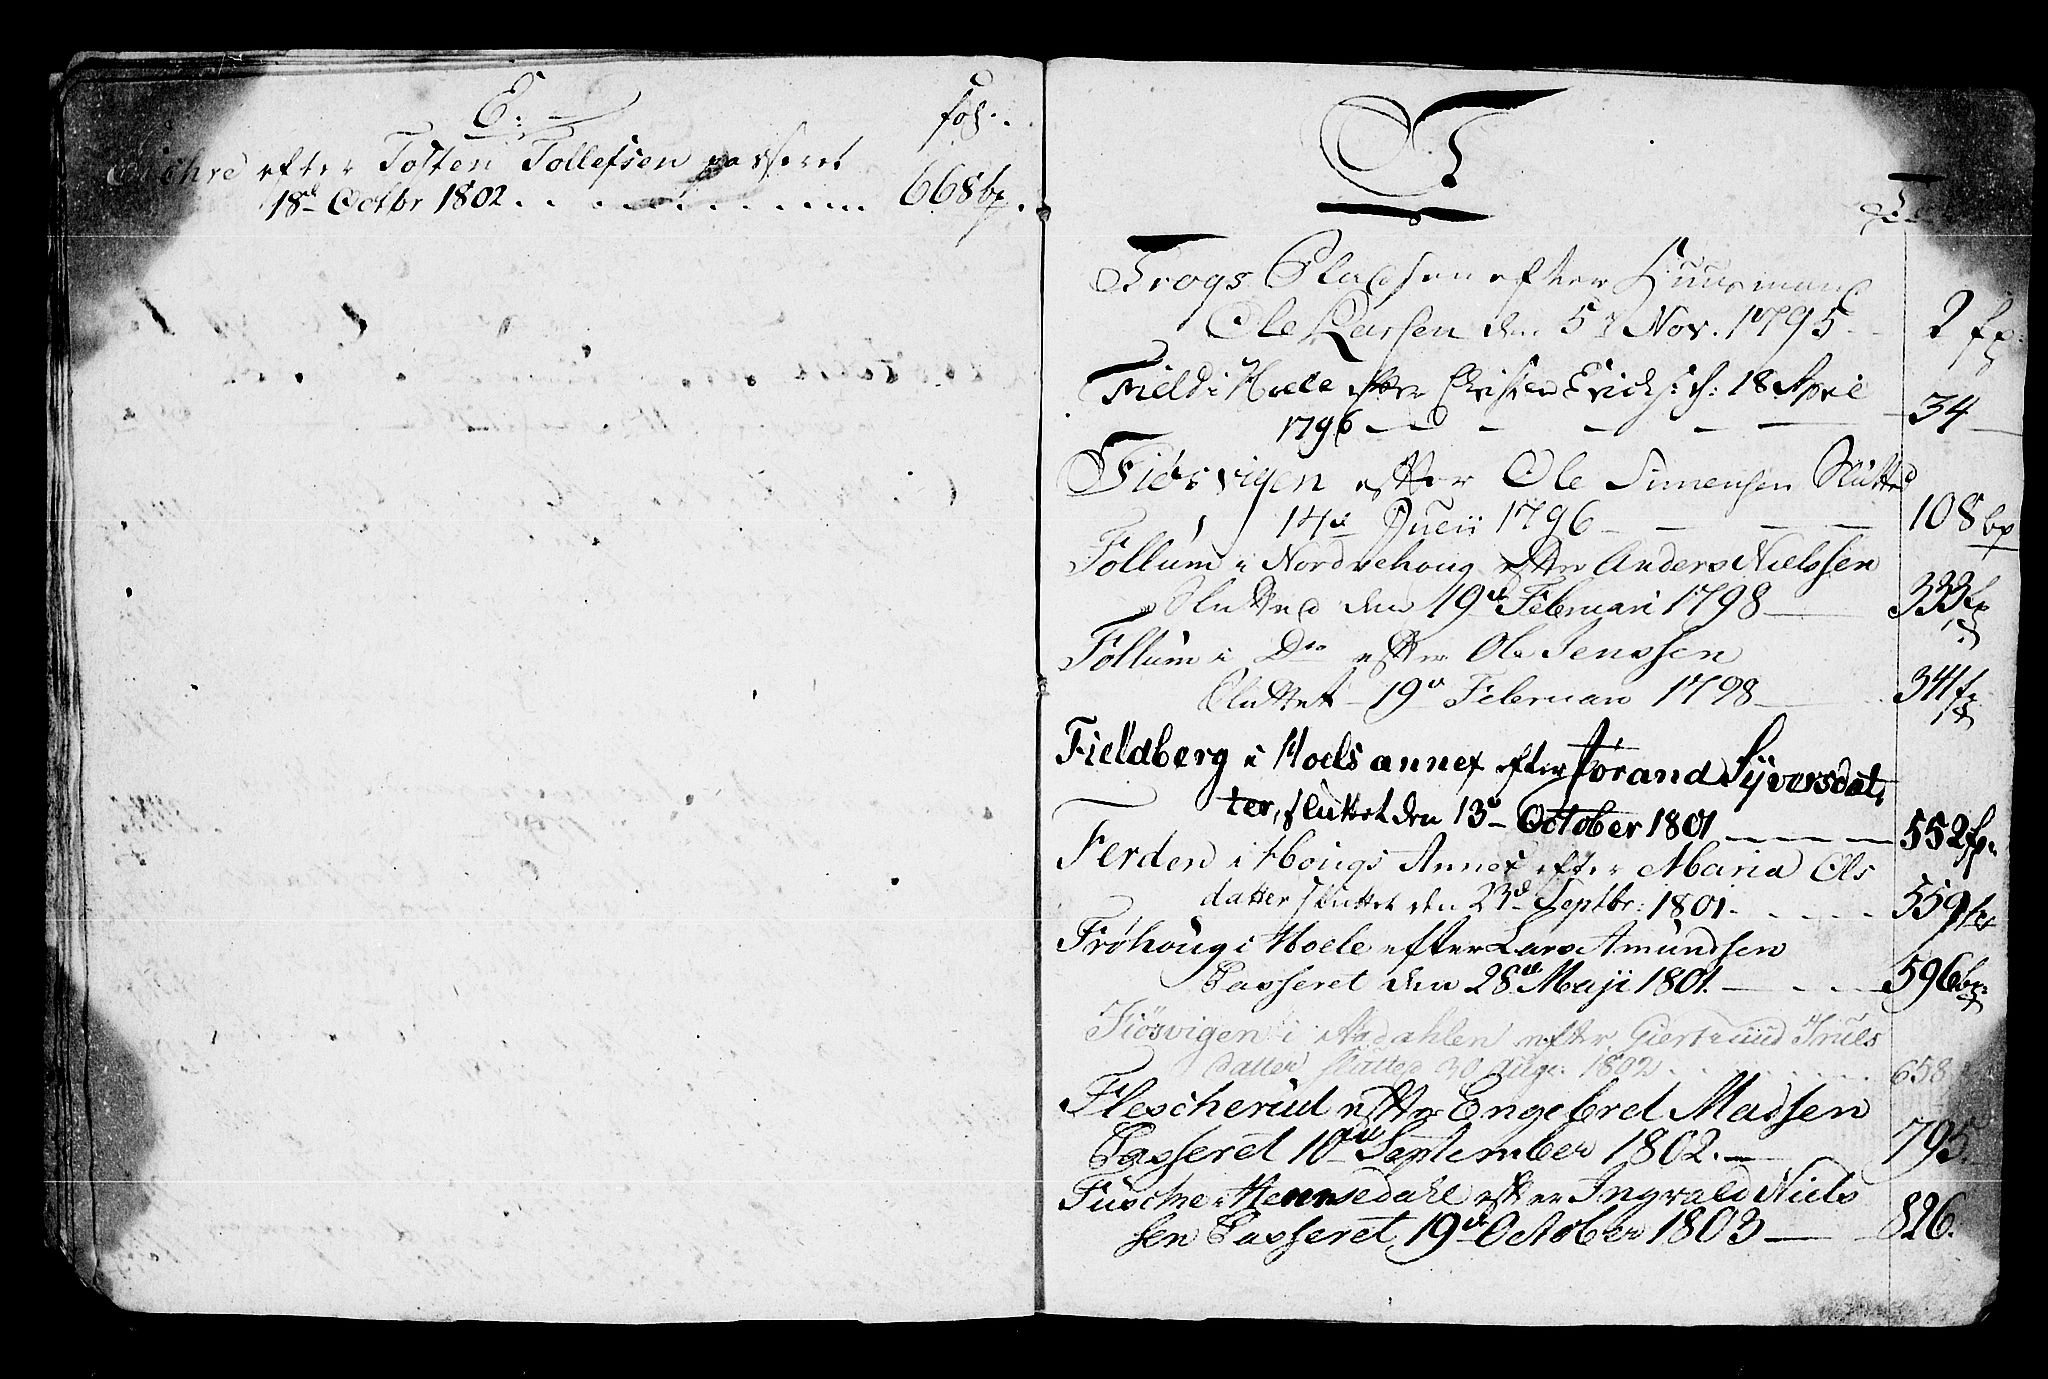 E:
fol:
efter Tosten Tollefsen passeret
18d Octbr 1802 . . . . . . . . . . 668 bp.
F
Frogs Pladsen efter Huusmand
Ole Larsen den 5d Nov. 1795 - 2 fp:
Field i Hoele efter Christen Erichs: d: 18 April
1796 - - - - - - 34 -
Fiøsvigen efter Ole Simensen Slutted
14d Junii 1796 - - - - 108 bp
Follum i Nordrehoug efter Anders Nielssen
Slutted den 19de Februari 1798 - 333 fp
Follum i Do efter Ole Jenssen
Sluttet 19de Februari 1798 - 341 fp
Fieldberg i Hoels annex efter Jørand Syversdat,
ter, sluttet den 13de October 1801 - - - - 552 fp.
Ferden i Hougs Annex efter Maria Ols
datter sluttet den 23d Septbr: 1801 - . . . . 559 fp
Frøhoug i Hoele efter Lars Amundsen
Passeret den 28de Maji 1801. - . - . 596 bp:
Fiøsvigen i Aadahlen efter Giertruud Truls
datter sluttet 30 Aug: 1802 . . . . . . 658
Flescherud efter Engebret Madsen
Passeret 10de September 1802. - 795.
Fusche i Hemsedahl efter Ingvald Niels
sen Passeret 19de October 1803 - 826.